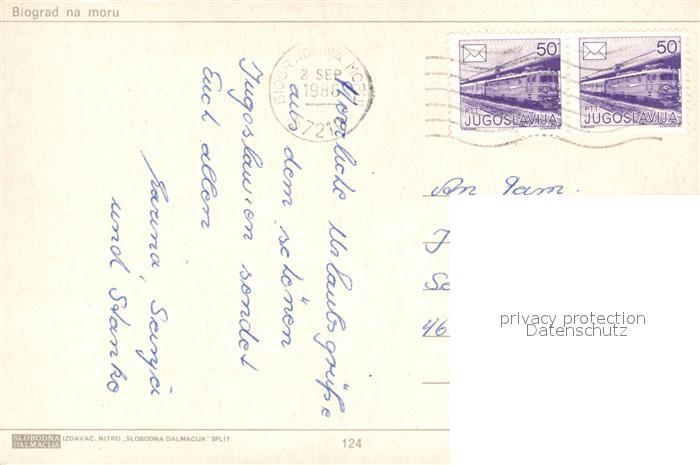 Biograd na moru
BIOGRAD NA MORU
2 SEP
1986
57210
50
PTT
JUGOSLAVIJA
50
PTT
JUGOSLAVIJA
Herzliche Urlaubsgrüße
aus dem schönen
Jugoslawien sendet
Euch allen
und Stanko
An Fam.
46
privacy protection
Datenschutz
SLOBODNA
DALMACIJA
IZDAVAČ: NITRO „SLOBODNA DALMACIJA" SPLIT
124